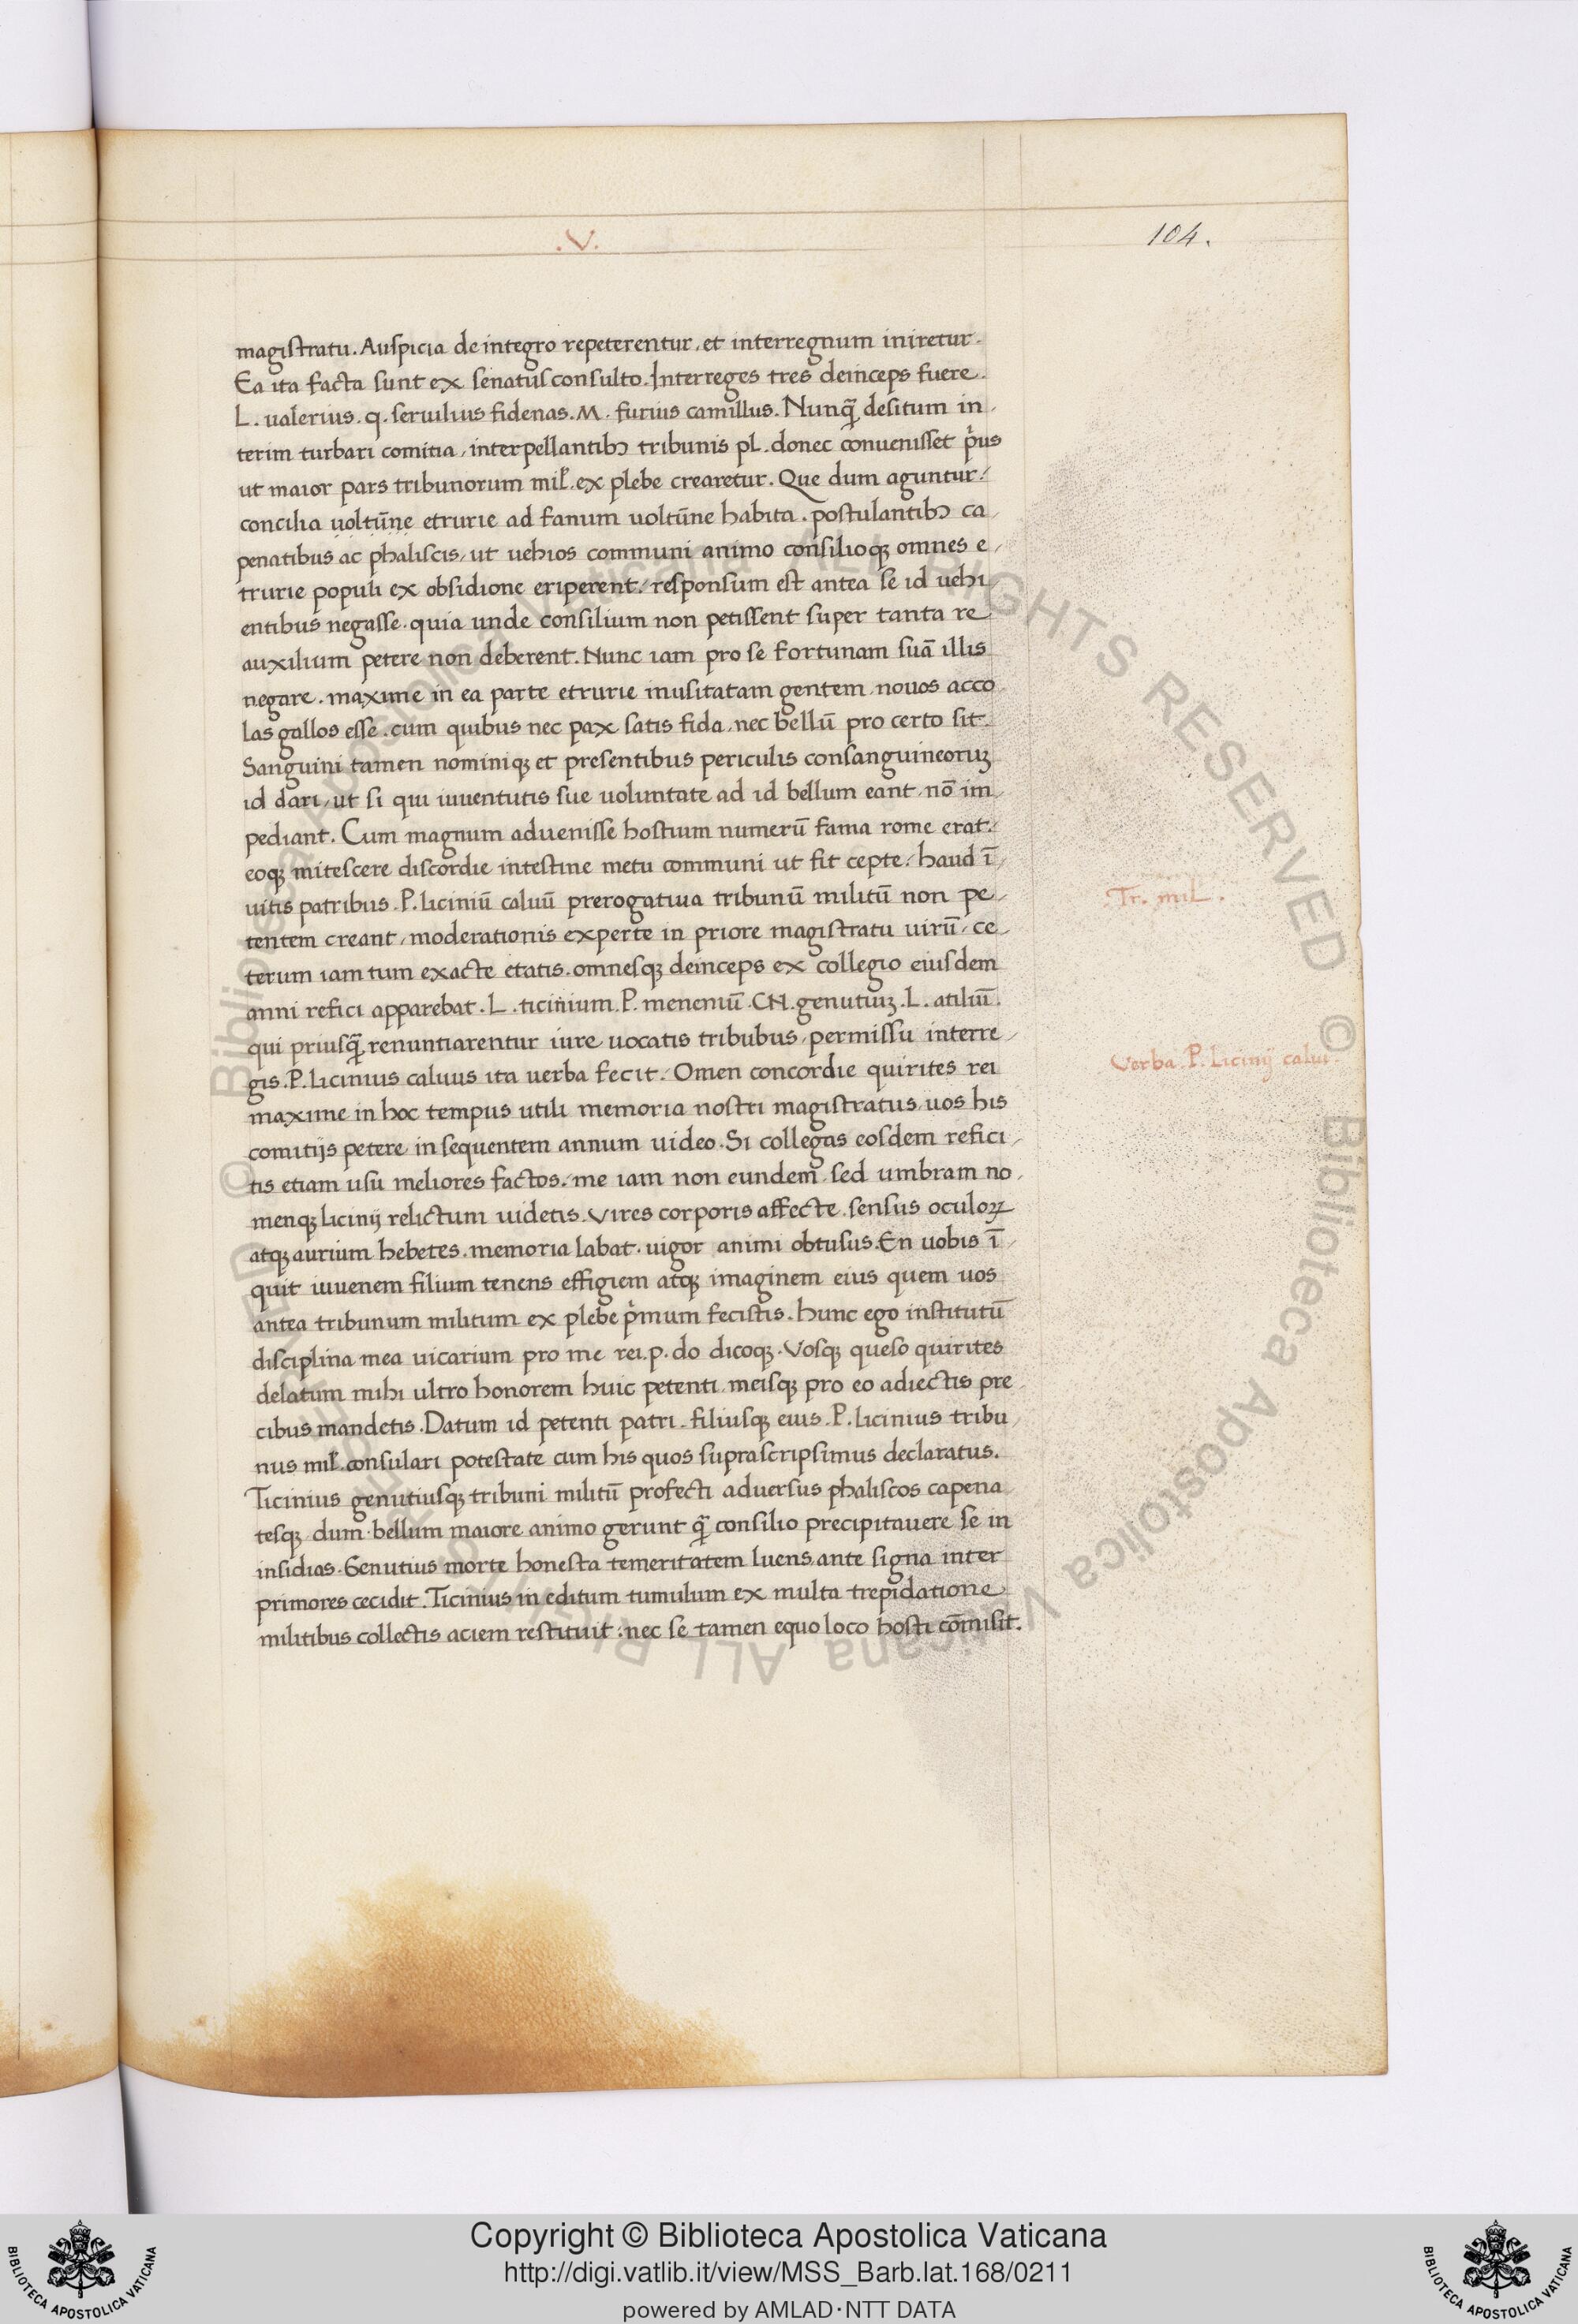 .V.
104.
magistratu. Auspicia de integro repeterentur, et interregnum iniretur.
Ea ita facta sunt ex senatus consulto. Interreges tres deinceps fuere.
L. ualerius. q. seruilius fidenas. M. furius camillus. Nunq̃ desitum in,
terim turbari comitia, interpellantibꝰ tribunis pl. donec conuenisset p̓us
ut maior pars tribunorum mil̓. ex plebe crearetur. Que dum aguntur,
concilia uoltūne etrurie ad fanum uoltūne habita. postulantibꝰ ca,
penatibus ac phaliscis, ut uehios communi animo consilioqꝫ omnes e,
trurie populi ex obsidione eriperent, responsum est antea se id uehi,
entibus negasse. quia unde consilium non petissent super tanta re
auxilium petere non deberent. Nunc iam pro se fortunam suā illis
negare. maxime in ea parte etrurie inusitatam gentem, nouos acco,
las gallos esse. cum quibus nec pax satis fida, nec bellū pro certo sit.
Sanguini tamen nominiqꝫ et presentibus periculis consanguineoruꝫ
id dari, ut si qui iuuentutis sue uoluntate ad id bellum eant, nō im
pediant. Cum magnum aduenisse hostium numerū fama rome erat.
eoqꝫ mitescere discordie intestine metu communi ut fit cepte. haud ī,
uitis patribus. P. liciniū caluū prerogatiua tribunū militū non pe,
tentem creant, moderationis experte in priore magistratu uirū, ce,
terum iam tum exacte etatis. omnesqꝫ deinceps ex collegio eiusdem
anni refici apparebat. L. ticinium. P. meneniū. CN. genutiuꝫ. L. atiliū.
qui priusq̃ renuntiarentur iure uocatis tribubus, permissu interre,
gis. P. licinius caluus ita uerba fecit. Omen concordie quirites rei
maxime in hoc tempus utili memoria nostri magistratus uos his
comitijs petere in sequentem annum uideo. Si collegas eosdem refici,
tis etiam usu meliores factos, me iam non eundem, sed umbram no,
menqꝫ licinij relictum uidetis. Vires corporis affecte. sensus oculoꝝ
atqꝫ aurium hebetes. memoria labat. uigor animi obtusus. En uobis ī,
quit iuuenem filium tenens effigiem atqꝫ imaginem eius quem uos
antea tribunum militum ex plebe p̓mum fecistis. hunc ego institutū
disciplina mea uicarium pro me rei. p. do dicoqꝫ. Vosqꝫ queso quirites
delatum mihi ultro honorem huic petenti, meisqꝫ pro eo adiectis pre,
cibus mandetis. Datum id petenti patri. filiusqꝫ eius. P. licinius tribu,
nus mil̓. consulari potestate cum his quos suprascripsimus declaratus.
Ticinius genutiusqꝫ tribuni militū profecti aduersus phaliscos capena,
tesqꝫ, dum bellum maiore animo gerunt q̃ consilio precipitauere se in
insidias. Genutius morte honesta temeritatem luens ante signa inter
primores cecidit. Ticinius in editum tumulum ex multa trepidatione
militibus collectis aciem restituit. nec se tamen equo loco hosti cōmisit.
Tr. mil.
Verba P. Licinij calui.
© Biblioteca Apostolica Vaticana ALL RIGHTS RESERVED
© Biblioteca Apostolica Vaticana ALL RIGHTS RESERVED
Copyright © Biblioteca Apostolica Vaticana
http://digi.vatlib.it/view/MSS_Barb.lat.168/0211
powered by AMLAD·NTT DATA
BIBLIOTECA APOSTOLICA VATICANA
BIBLIOTECA APOSTOLICA VATICANA